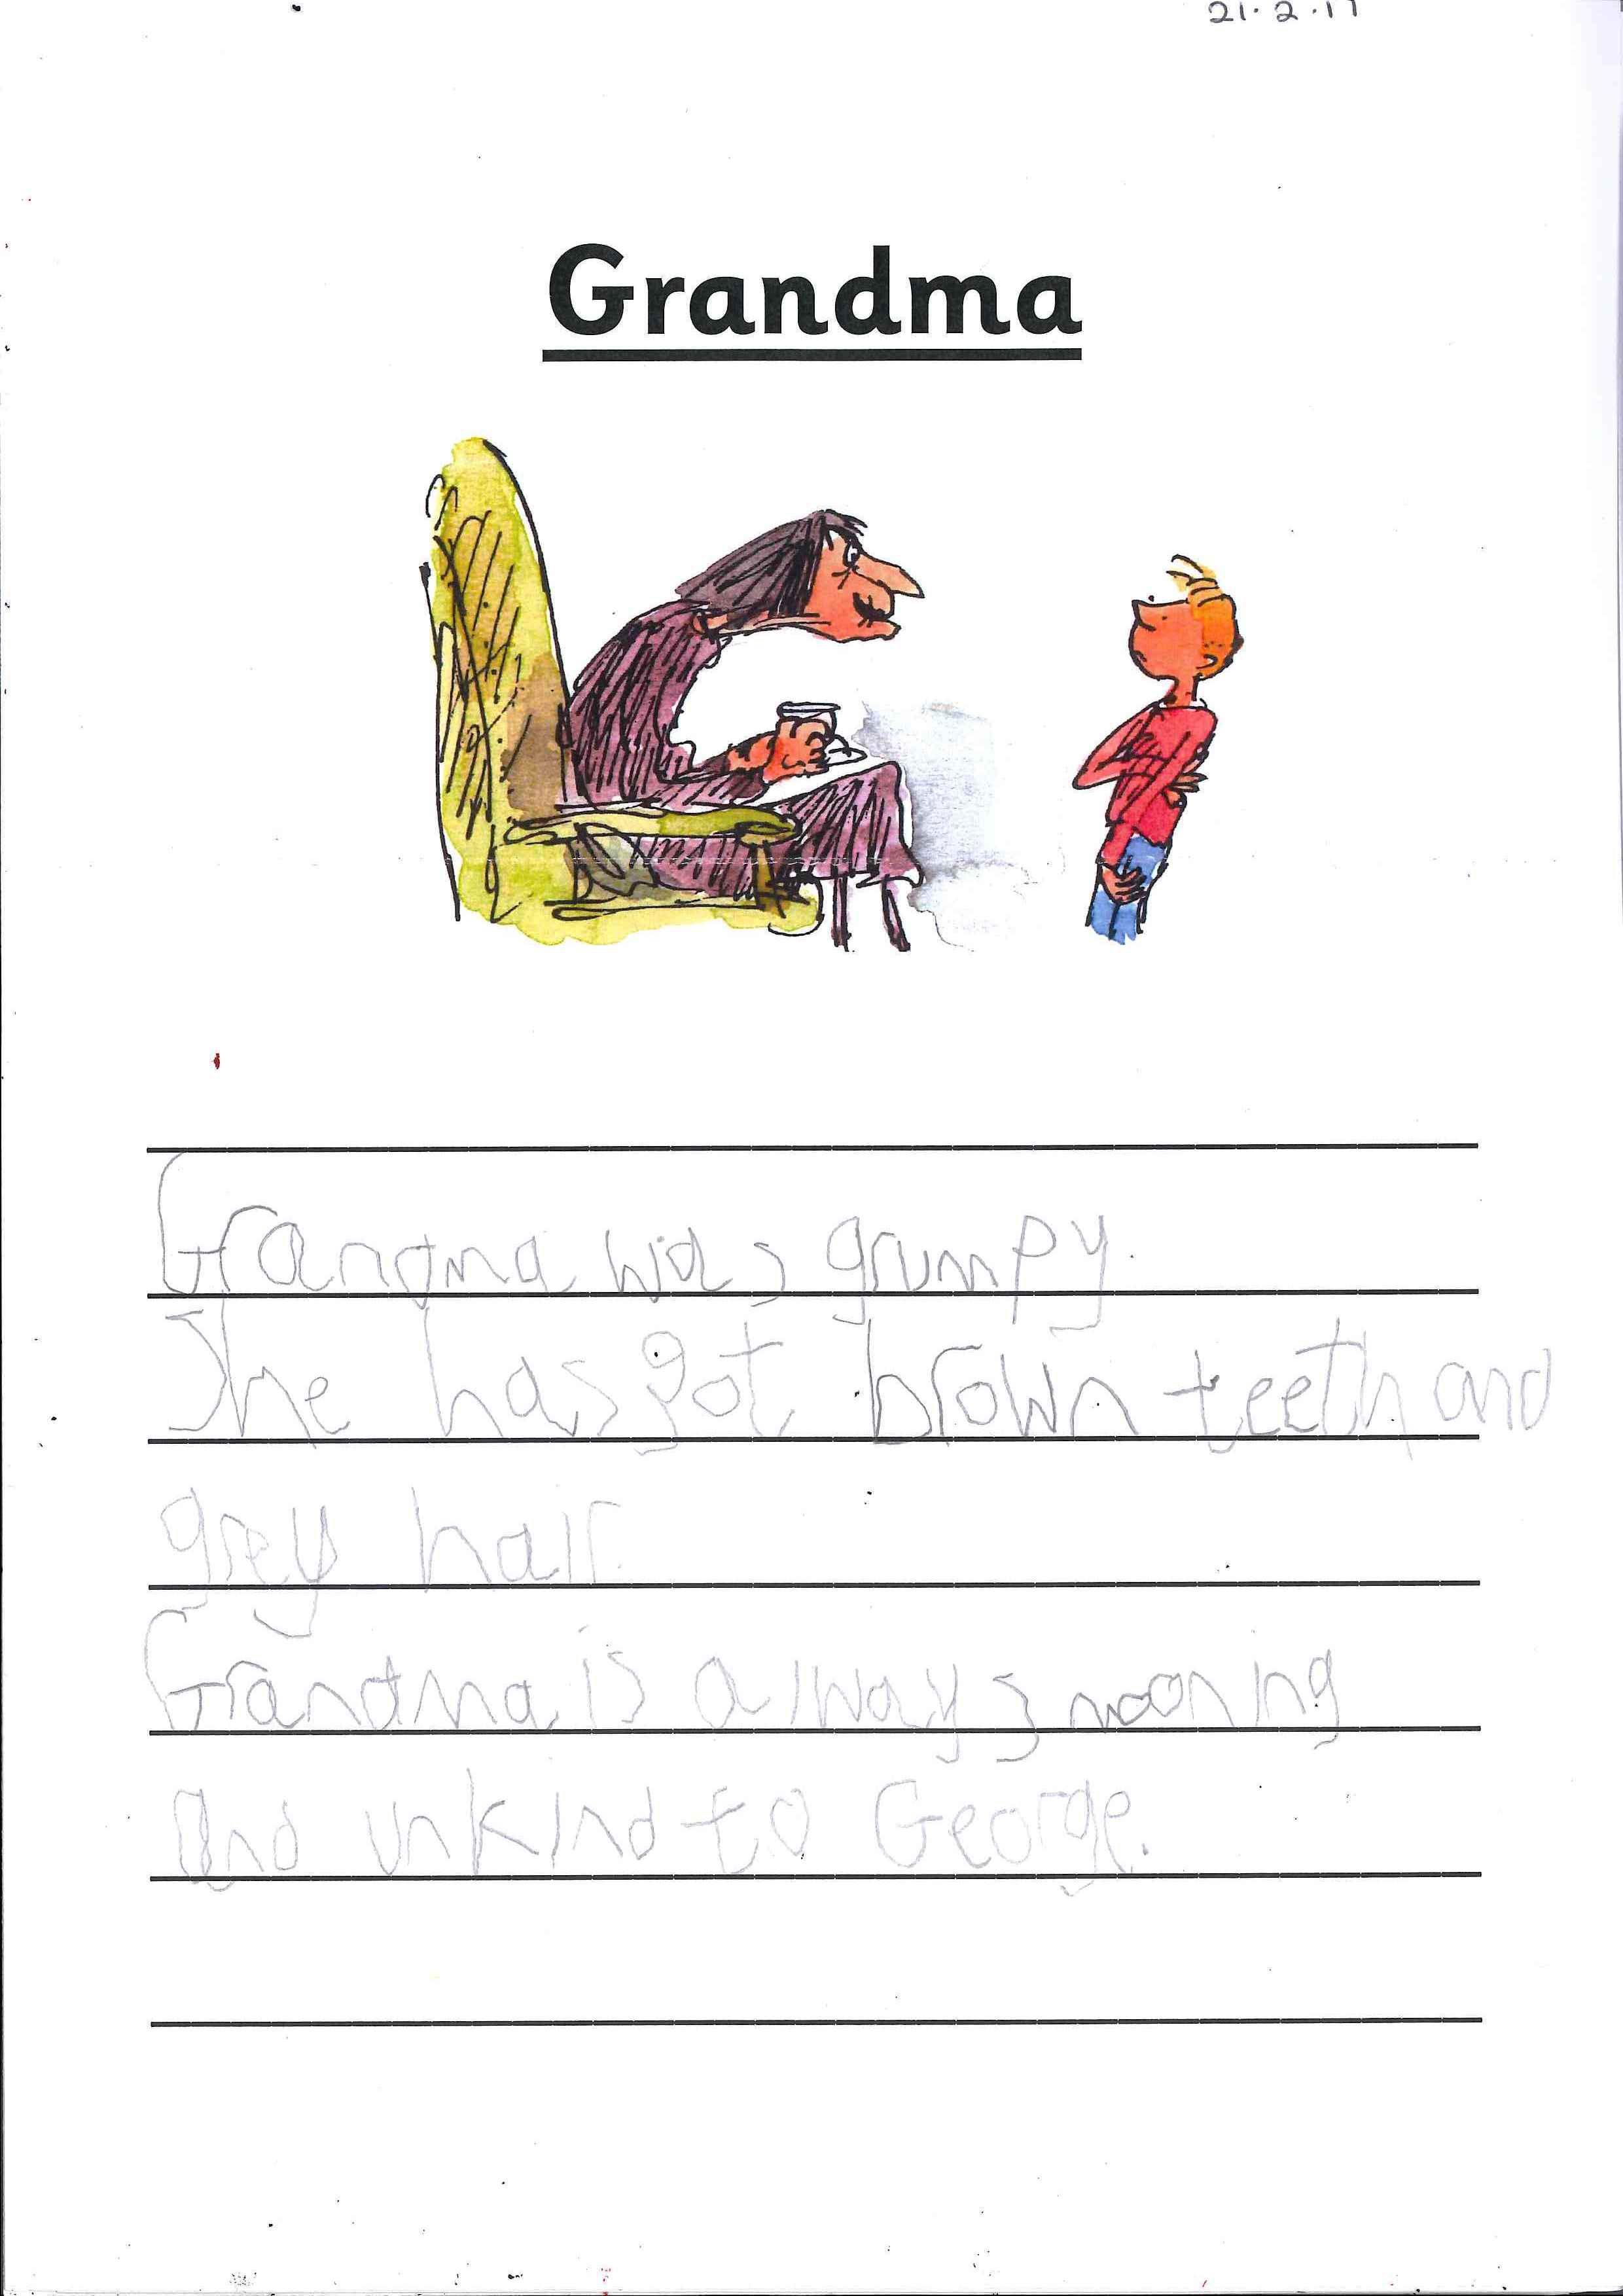 21.2.17
Grandma
Grandma was grumpy.
She has got brown teeth and
grey hair.
Grandma is always moaning
and unkind to George.